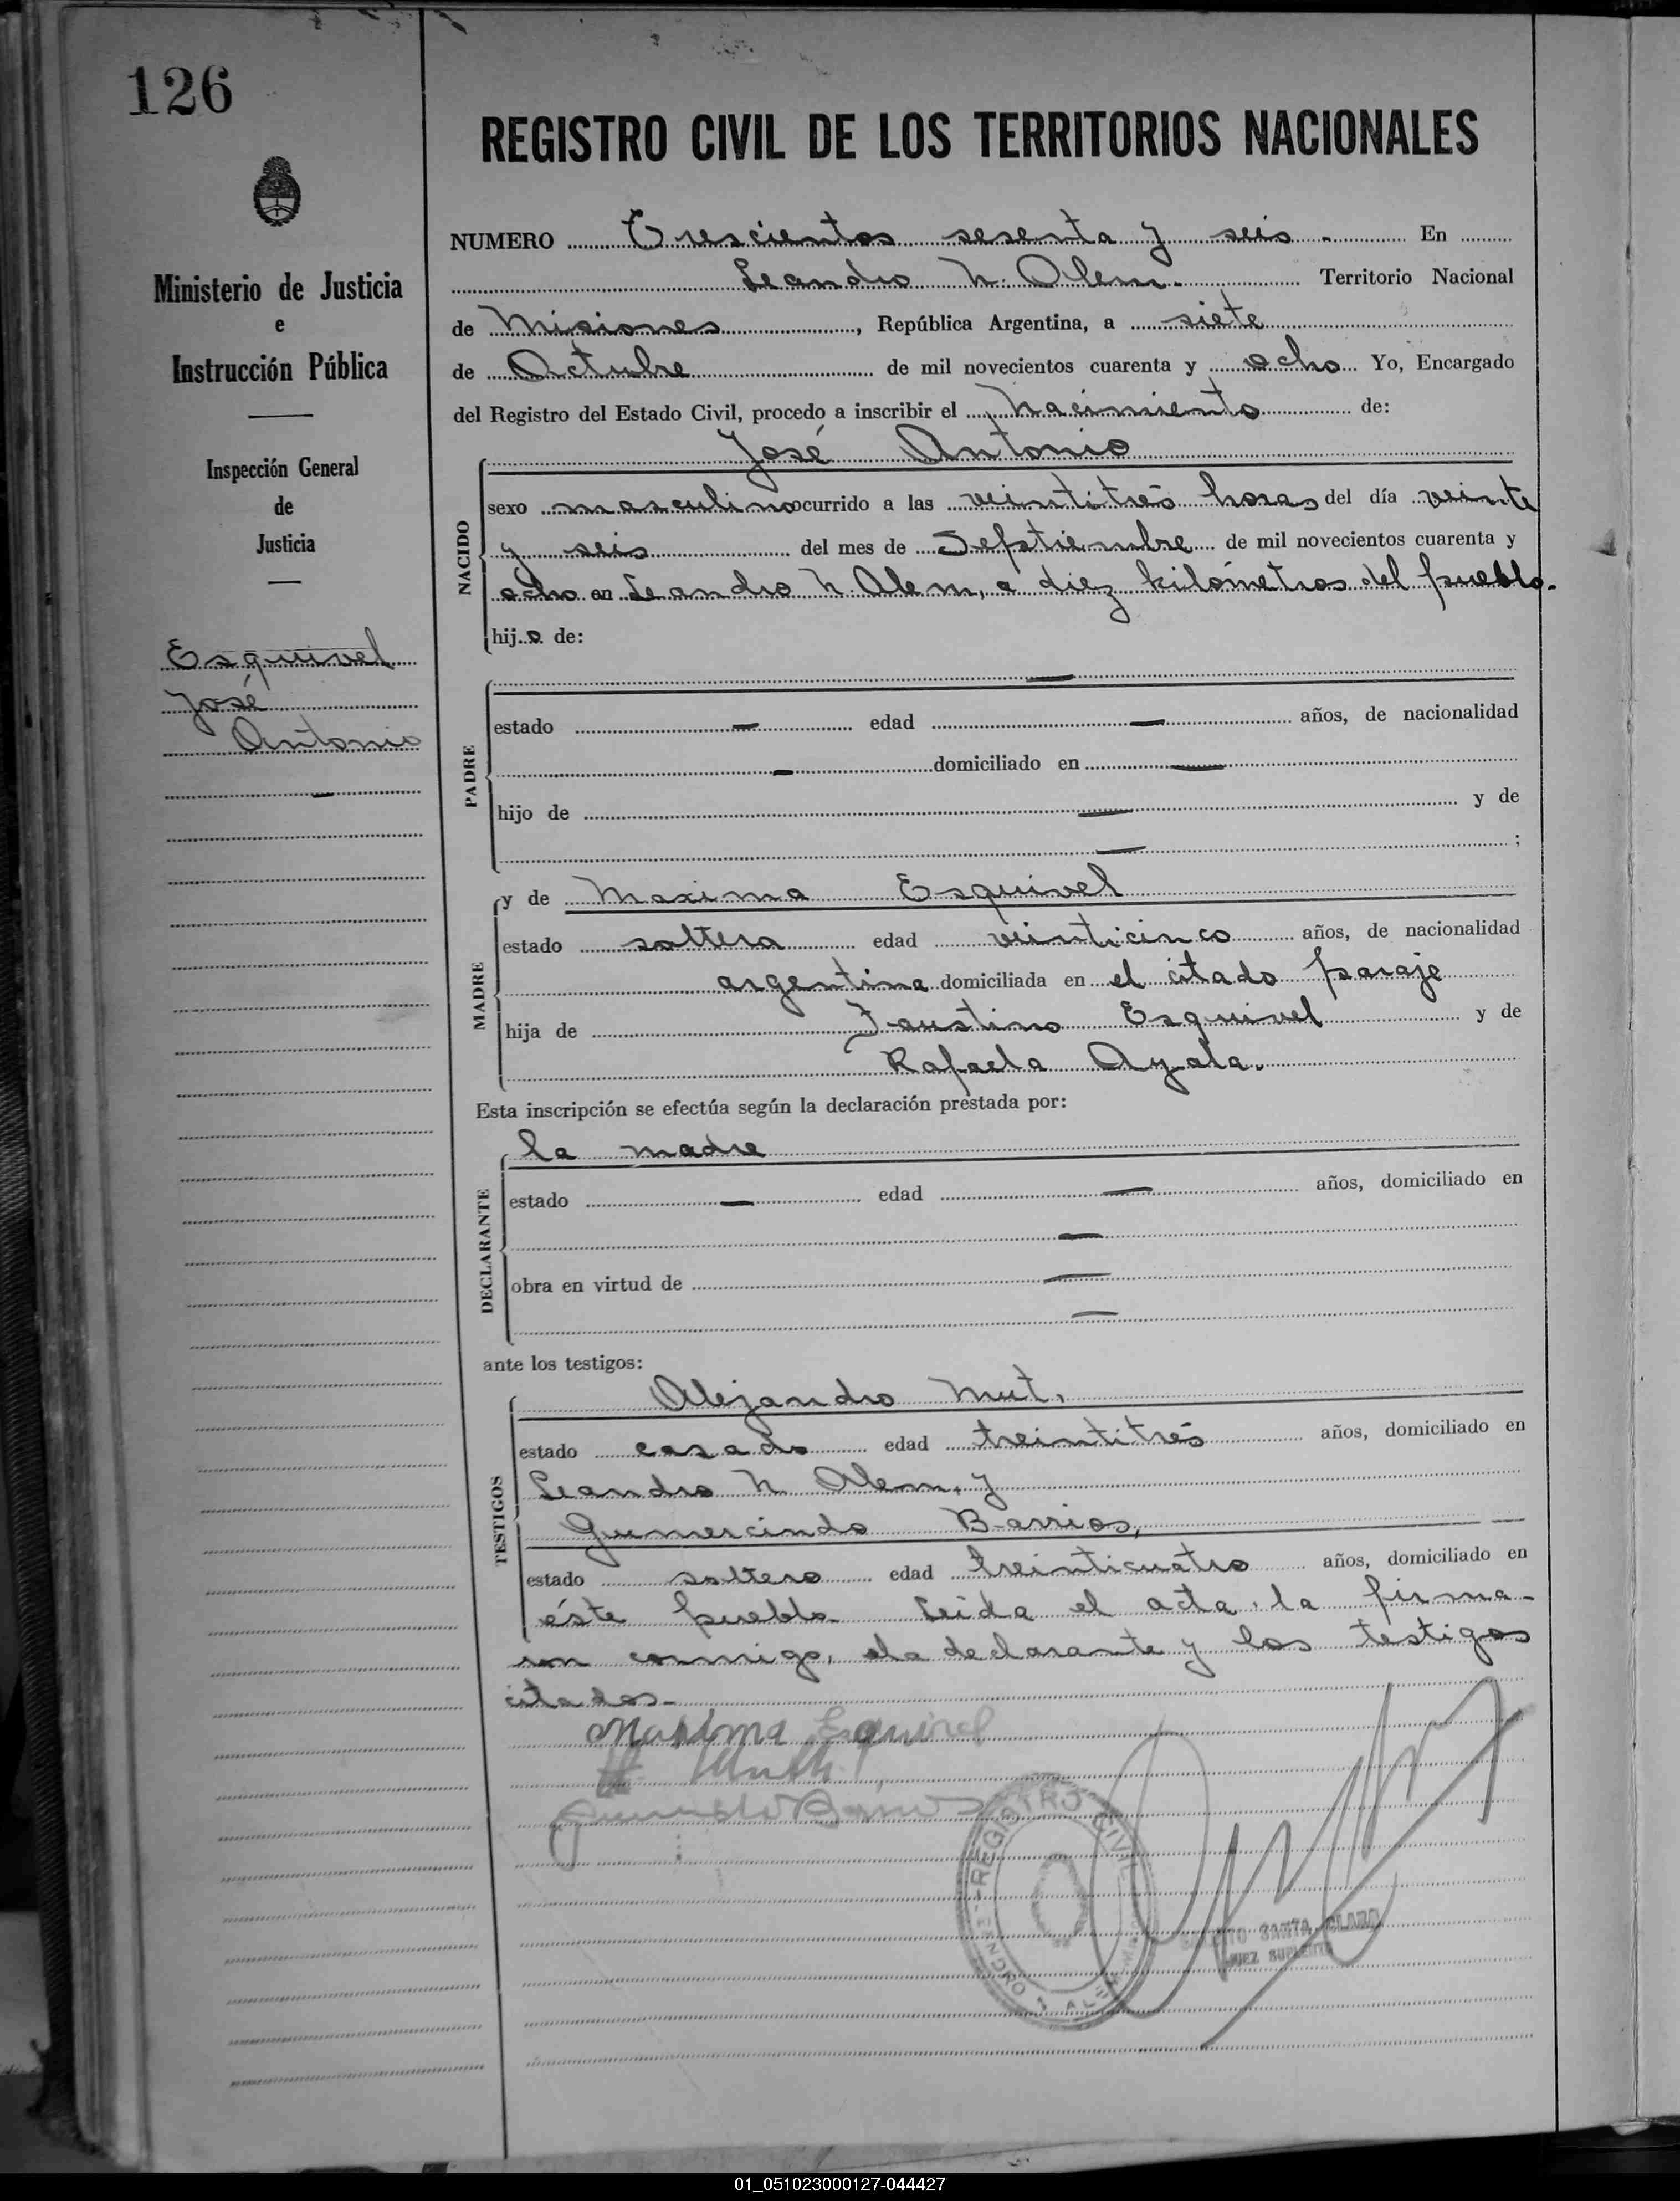 126
REGISTRO CIVIL DE LOS TERRITORIOS NACIONALES
Ministerio de Justicia
e
Instrucción Pública
Inspección General
de
Justicia
Esquivel
José
Antonio
NUMERO Trescientos sesenta y seis. En
Leandro N. Alem. Territorio Nacional
de Misiones, República Argentina, a siete
de Octubre de mil novecientos cuarenta y ocho Yo, Encargado
del Registro del Estado Civil, procedo a inscribir el Nacimiento de:
José Antonio
NACIDO
sexo masculino ocurrido a las veintitrés horas del día veinte
y seis del mes de Septiembre de mil novecientos cuarenta y
ocho en Leandro N. Alem, a diez kilómetros del pueblo.
hijo de:
PADRE
estado — edad — años, de nacionalidad
— domiciliado en —
hijo de — y de
— ;
MADRE
y de Maxima Esquivel
estado soltera edad veinticinco años, de nacionalidad
argentina domiciliada en el citado paraje
hija de Faustino Esquivel y de
Rafaela Ayala.
Esta inscripción se efectúa según la declaración prestada por:
DECLARANTE
la madre
estado — edad — años, domiciliado en
—
obra en virtud de —
—
ante los testigos:
TESTIGOS
Alejandro Mut,
estado casado edad treintitrés años, domiciliado en
Leandro N. Alem, y
Gumercindo Barrios,
estado soltero edad treinticuatro años, domiciliado en
éste pueblo. Leida el acta, la firma-
ron conmigo, la declarante y los testigos
citados.-
Maxima Esquivel
REGISTRO CIVIL
SANTA CLARA
JUEZ SUPLENTE
01_051023000127-044427